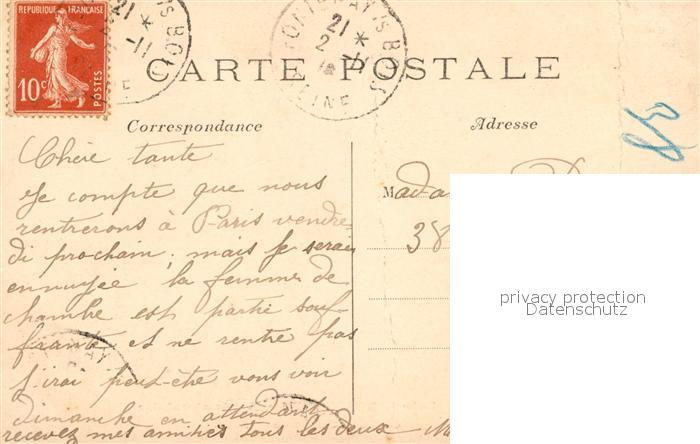 REPUBLIQUE FRANÇAISE
10c POSTES
21 *
-11
SEINE
FONTENAY /S BOIS
21 *
2 -11
SEINE
CARTE POSTALE
Correspondance
Adresse
38
Chère tante
Je compte que nous
rentrerons à Paris vendre-
di prochain, mais je serai
ennuyée la femme de
chambre est partie souf-
frante et ne rentre pas
J'irai peut-être vous voir
dimanche en attendant
recevez mes amitiés tous les deux
Mada
38
privacy protection
Datenschutz